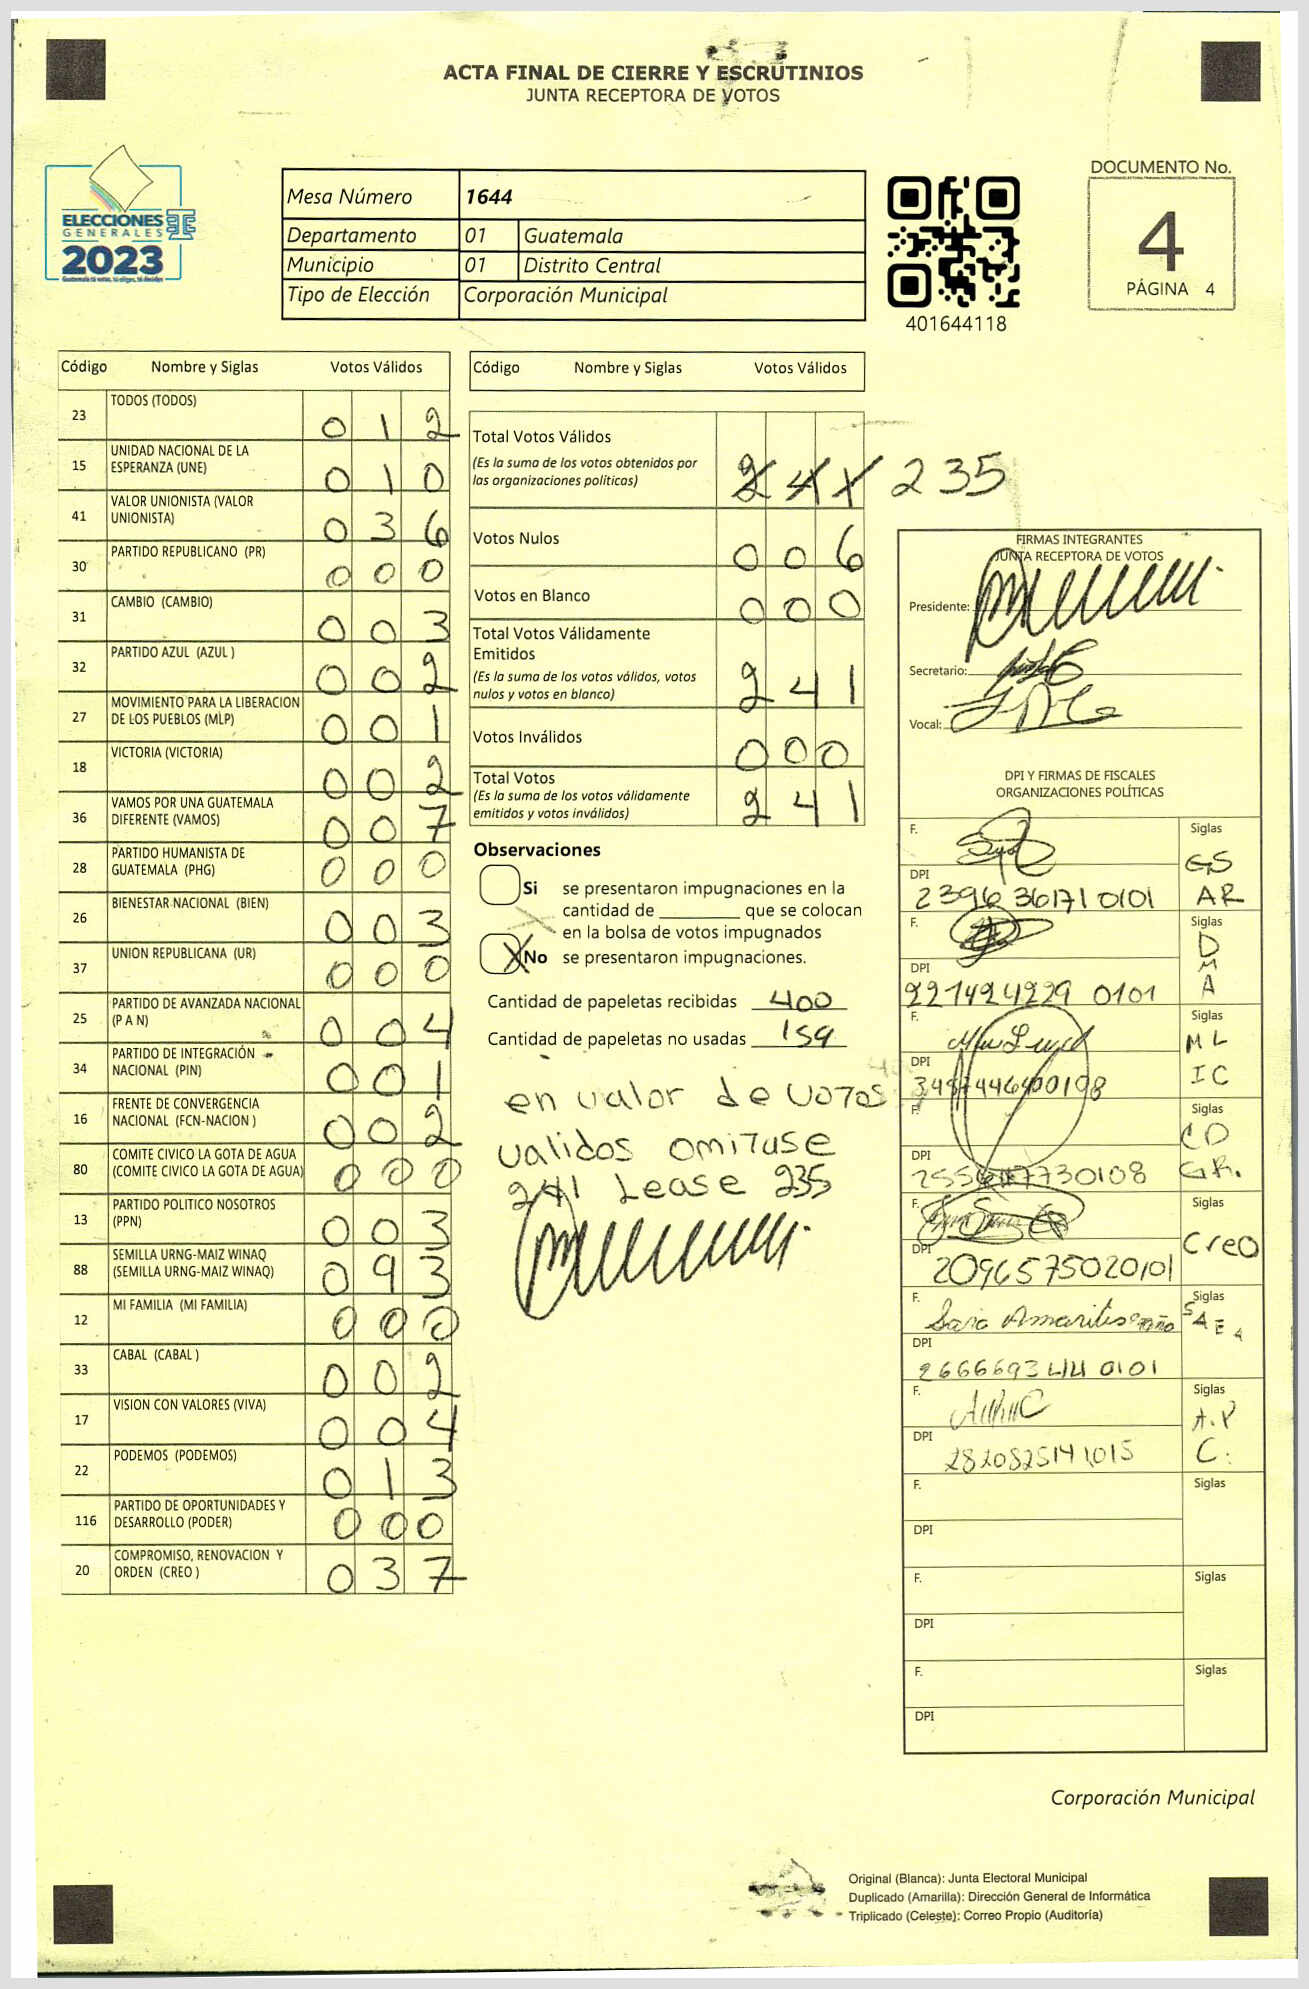 ACTA FINAL DE CIERRE Y ESCRUTINIOS
JUNTA RECEPTORA DE VOTOS
ELECCIONES
GENERALES
2023
Guatemala tú votas, tú eliges, tú decides
Mesa Número 1644
Departamento 01 Guatemala
Municipio 01 Distrito Central
Tipo de Elección Corporación Municipal
401644118
DOCUMENTO No.
4
PÁGINA 4
Código Nombre y Siglas Votos Válidos
23 TODOS (TODOS) 0 1 2
15 UNIDAD NACIONAL DE LA ESPERANZA (UNE) 0 1 0
41 VALOR UNIONISTA (VALOR UNIONISTA) 0 3 6
30 PARTIDO REPUBLICANO (PR) 0 0 0
31 CAMBIO (CAMBIO) 0 0 3
32 PARTIDO AZUL (AZUL ) 0 0 2
27 MOVIMIENTO PARA LA LIBERACION DE LOS PUEBLOS (MLP) 0 0 1
18 VICTORIA (VICTORIA) 0 0 2
36 VAMOS POR UNA GUATEMALA DIFERENTE (VAMOS) 0 0 7
28 PARTIDO HUMANISTA DE GUATEMALA (PHG) 0 0 0
26 BIENESTAR NACIONAL (BIEN) 0 0 3
37 UNION REPUBLICANA (UR) 0 0 0
25 PARTIDO DE AVANZADA NACIONAL (P A N) 0 0 4
34 PARTIDO DE INTEGRACIÓN NACIONAL (PIN) 0 0 1
16 FRENTE DE CONVERGENCIA NACIONAL (FCN-NACION ) 0 0 2
80 COMITE CIVICO LA GOTA DE AGUA (COMITE CIVICO LA GOTA DE AGUA) 0 0 0
13 PARTIDO POLITICO NOSOTROS (PPN) 0 0 3
88 SEMILLA URNG-MAIZ WINAQ (SEMILLA URNG-MAIZ WINAQ) 0 9 3
12 MI FAMILIA (MI FAMILIA) 0 0 0
33 CABAL (CABAL ) 0 0 2
17 VISION CON VALORES (VIVA) 0 0 4
22 PODEMOS (PODEMOS) 0 1 3
116 PARTIDO DE OPORTUNIDADES Y DESARROLLO (PODER) 0 0 0
20 COMPROMISO, RENOVACION Y ORDEN (CREO ) 0 3 7
Código Nombre y Siglas Votos Válidos
Total Votos Válidos 2 4 1 235
(Es la suma de los votos obtenidos por
las organizaciones politicas)
Votos Nulos 0 0 6
Votos en Blanco 0 0 0
Total Votos Válidamente
Emitidos 2 4 1
(Es la suma de los votos válidos, votos
nulos y votos en blanco)
Votos Inválidos 0 0 0
Total Votos 2 4 1
(Es la suma de los votos válidamente
emitidos y votos inválidos)
Observaciones
Si se presentaron impugnaciones en la
cantidad de ________ que se colocan
en la bolsa de votos impugnados
X No se presentaron impugnaciones.
Cantidad de papeletas recibidas 400
Cantidad de papeletas no usadas 159
en valor de votos
validos omitase
241 Lease 235
FIRMAS INTEGRANTES
JUNTA RECEPTORA DE VOTOS
Presidente:
Secretario:
Vocal:
DPI Y FIRMAS DE FISCALES
ORGANIZACIONES POLÍTICAS
F. Siglas
GS
AR
DPI
2396 36171 0101
F. Siglas
D
M
A
DPI
221424229 0101
F. Siglas
ML
IC
DPI
F. Siglas
CD
GR.
DPI
F. Siglas
Creo
DPI
2096575020101
F. Siglas
SAEA
Sara Amarilis
DPI
F. Siglas
A.P
C.
DPI
F. Siglas
DPI
F. Siglas
DPI
F. Siglas
DPI
Corporación Municipal
Original (Blanca): Junta Electoral Municipal
Duplicado (Amarilla): Dirección General de Informática
Triplicado (Celeste): Correo Propio (Auditoría)